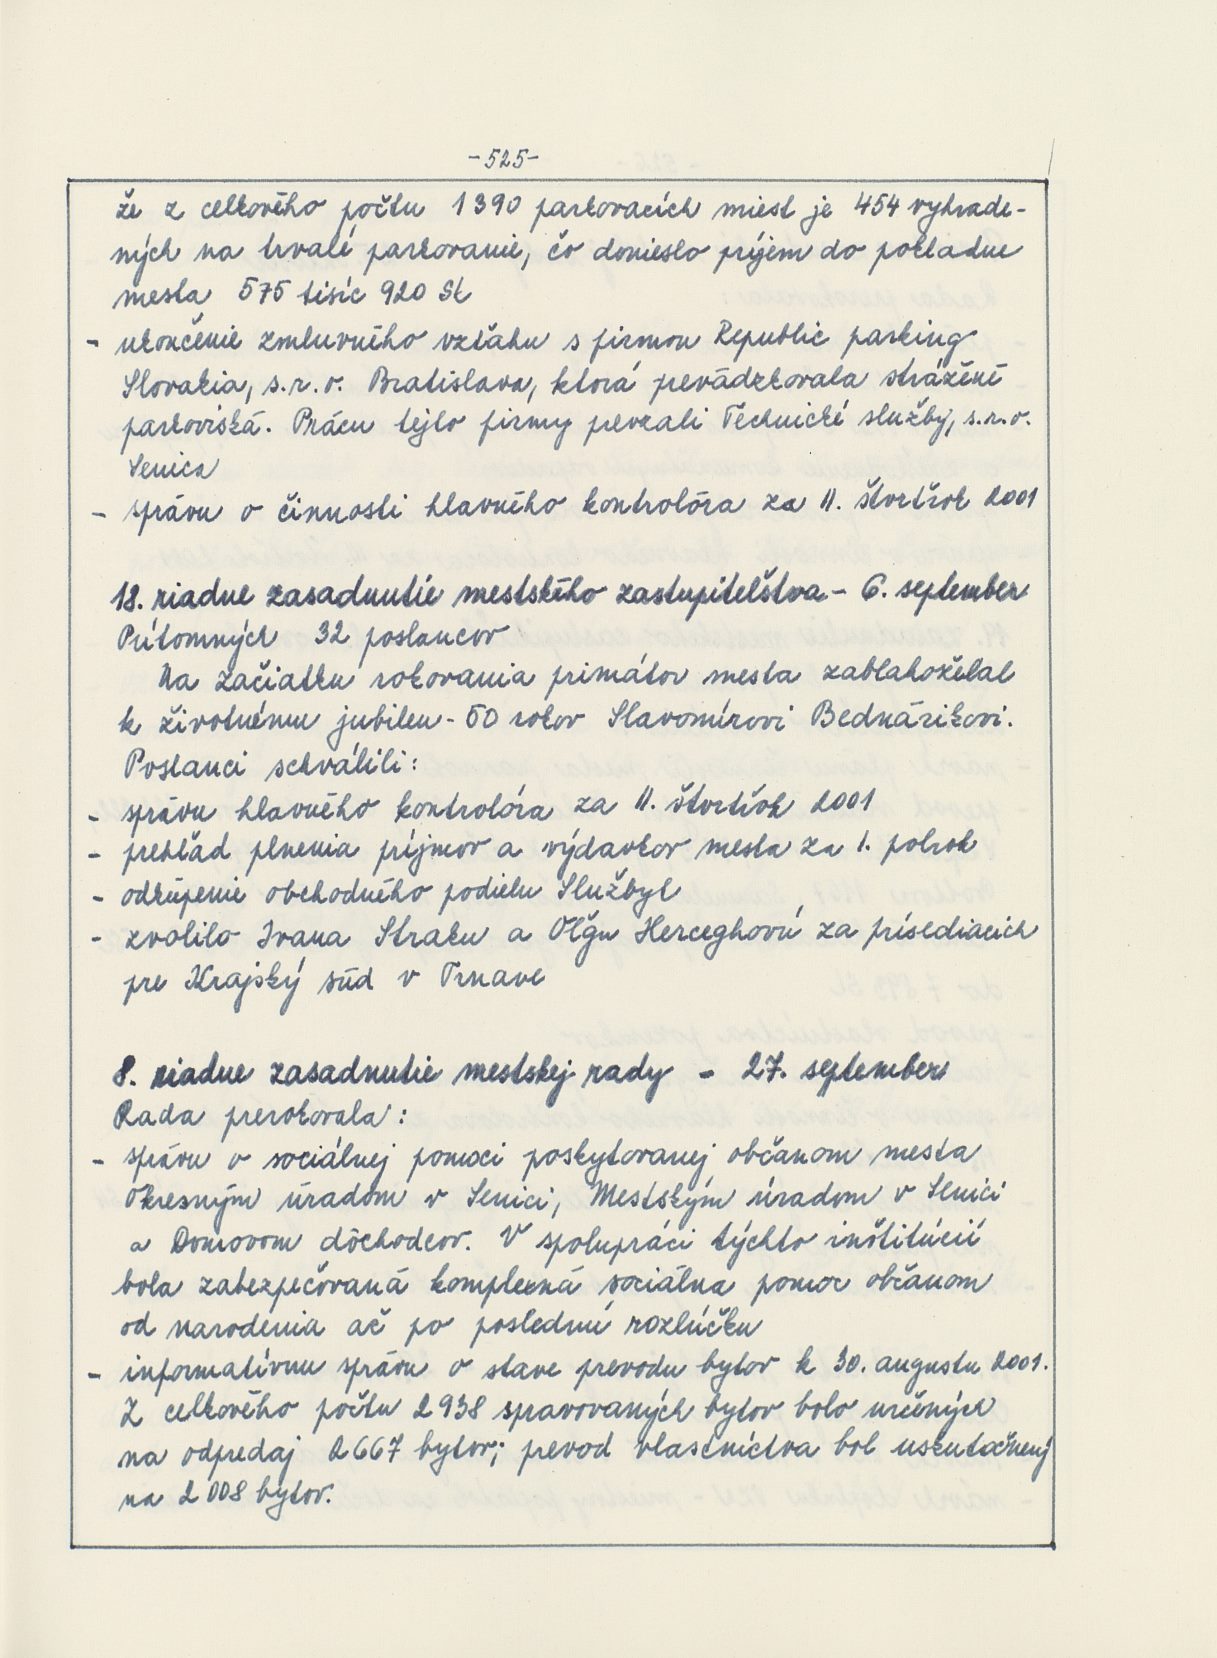 -525-
že z celkového počtu 1390 parkovacích miest je 454 vyhrade-
ných na trvalé parkovanie, čo donieslo príjem do pokladne
mesta 575 tisíc 920 Sk
- ukončenie zmluvného vzťahu s firmou Republic parking
Slovakia, s.r.o. Bratislava, ktorá prevádzkovala strážené
parkoviská. Prácu tejto firmy prevzali Technické služby, s.r.o.
Senica
- správu o činnosti hlavného kontrolóra za II. štvrťrok 2001
18. riadne zasadnutie mestského zastupiteľstva - 6. september
Prítomných 32 poslancov
Na začiatku rokovania primátor mesta zablahoželal
k životnému jubileu - 50 rokov Slavomírovi Bednárikovi.
Poslanci schválili:
- správu hlavného kontrolóra za II. štvrťrok 2001
- prehľad plnenia príjmov a výdavkov mesta za 1. polrok
- odkúpenie obchodného podielu Službyt
- zvolilo Ivana Straku a Oľgu Herceghovú za prísediacich
pre Krajský súd v Trnave
8. riadne zasadnutie mestskej rady - 27. september
Rada prerokovala:
- správu o sociálnej pomoci poskytovanej občanom mesta
Okresným úradom v Senici, Mestským úradom v Senici
a Domovom dôchodcov. V spolupráci týchto inštitúcií
bola zabezpečovaná komplexná sociálna pomoc občanom
od narodenia až po poslednú rozlúčku
- informatívnu správu o stave prevodu bytov k 30. augustu 2001.
Z celkového počtu 2938 spravovaných bytov bolo určených
na odpredaj 2667 bytov; prevod vlastníctva bol uskutočnený
na 2008 bytov.